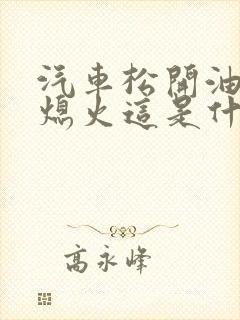 汽車松開油
熄火這是什
高永峰